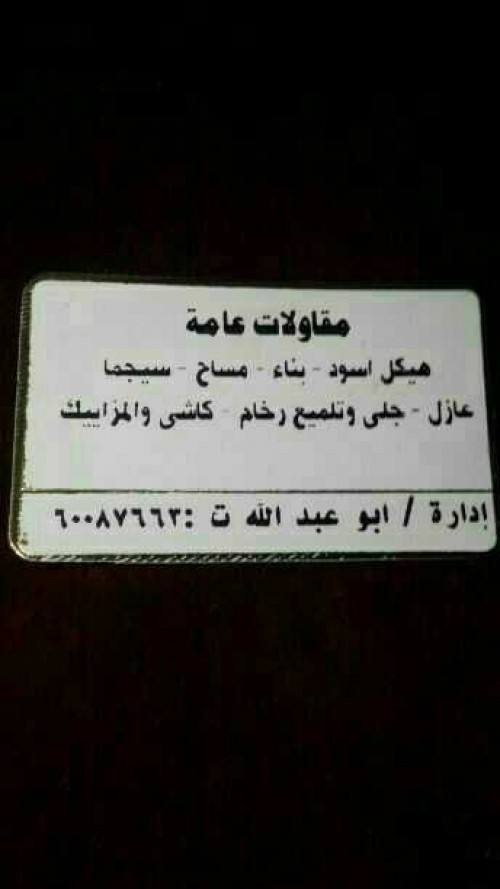 مقاولات عامة
هيكل اسود - بناء - مساح - سيجما
عازل - جلى وتلميع رخام - كاشى والمزاييك
إدارة / ابو عبد الله ت :٦٠٠٨٧٦٦٣